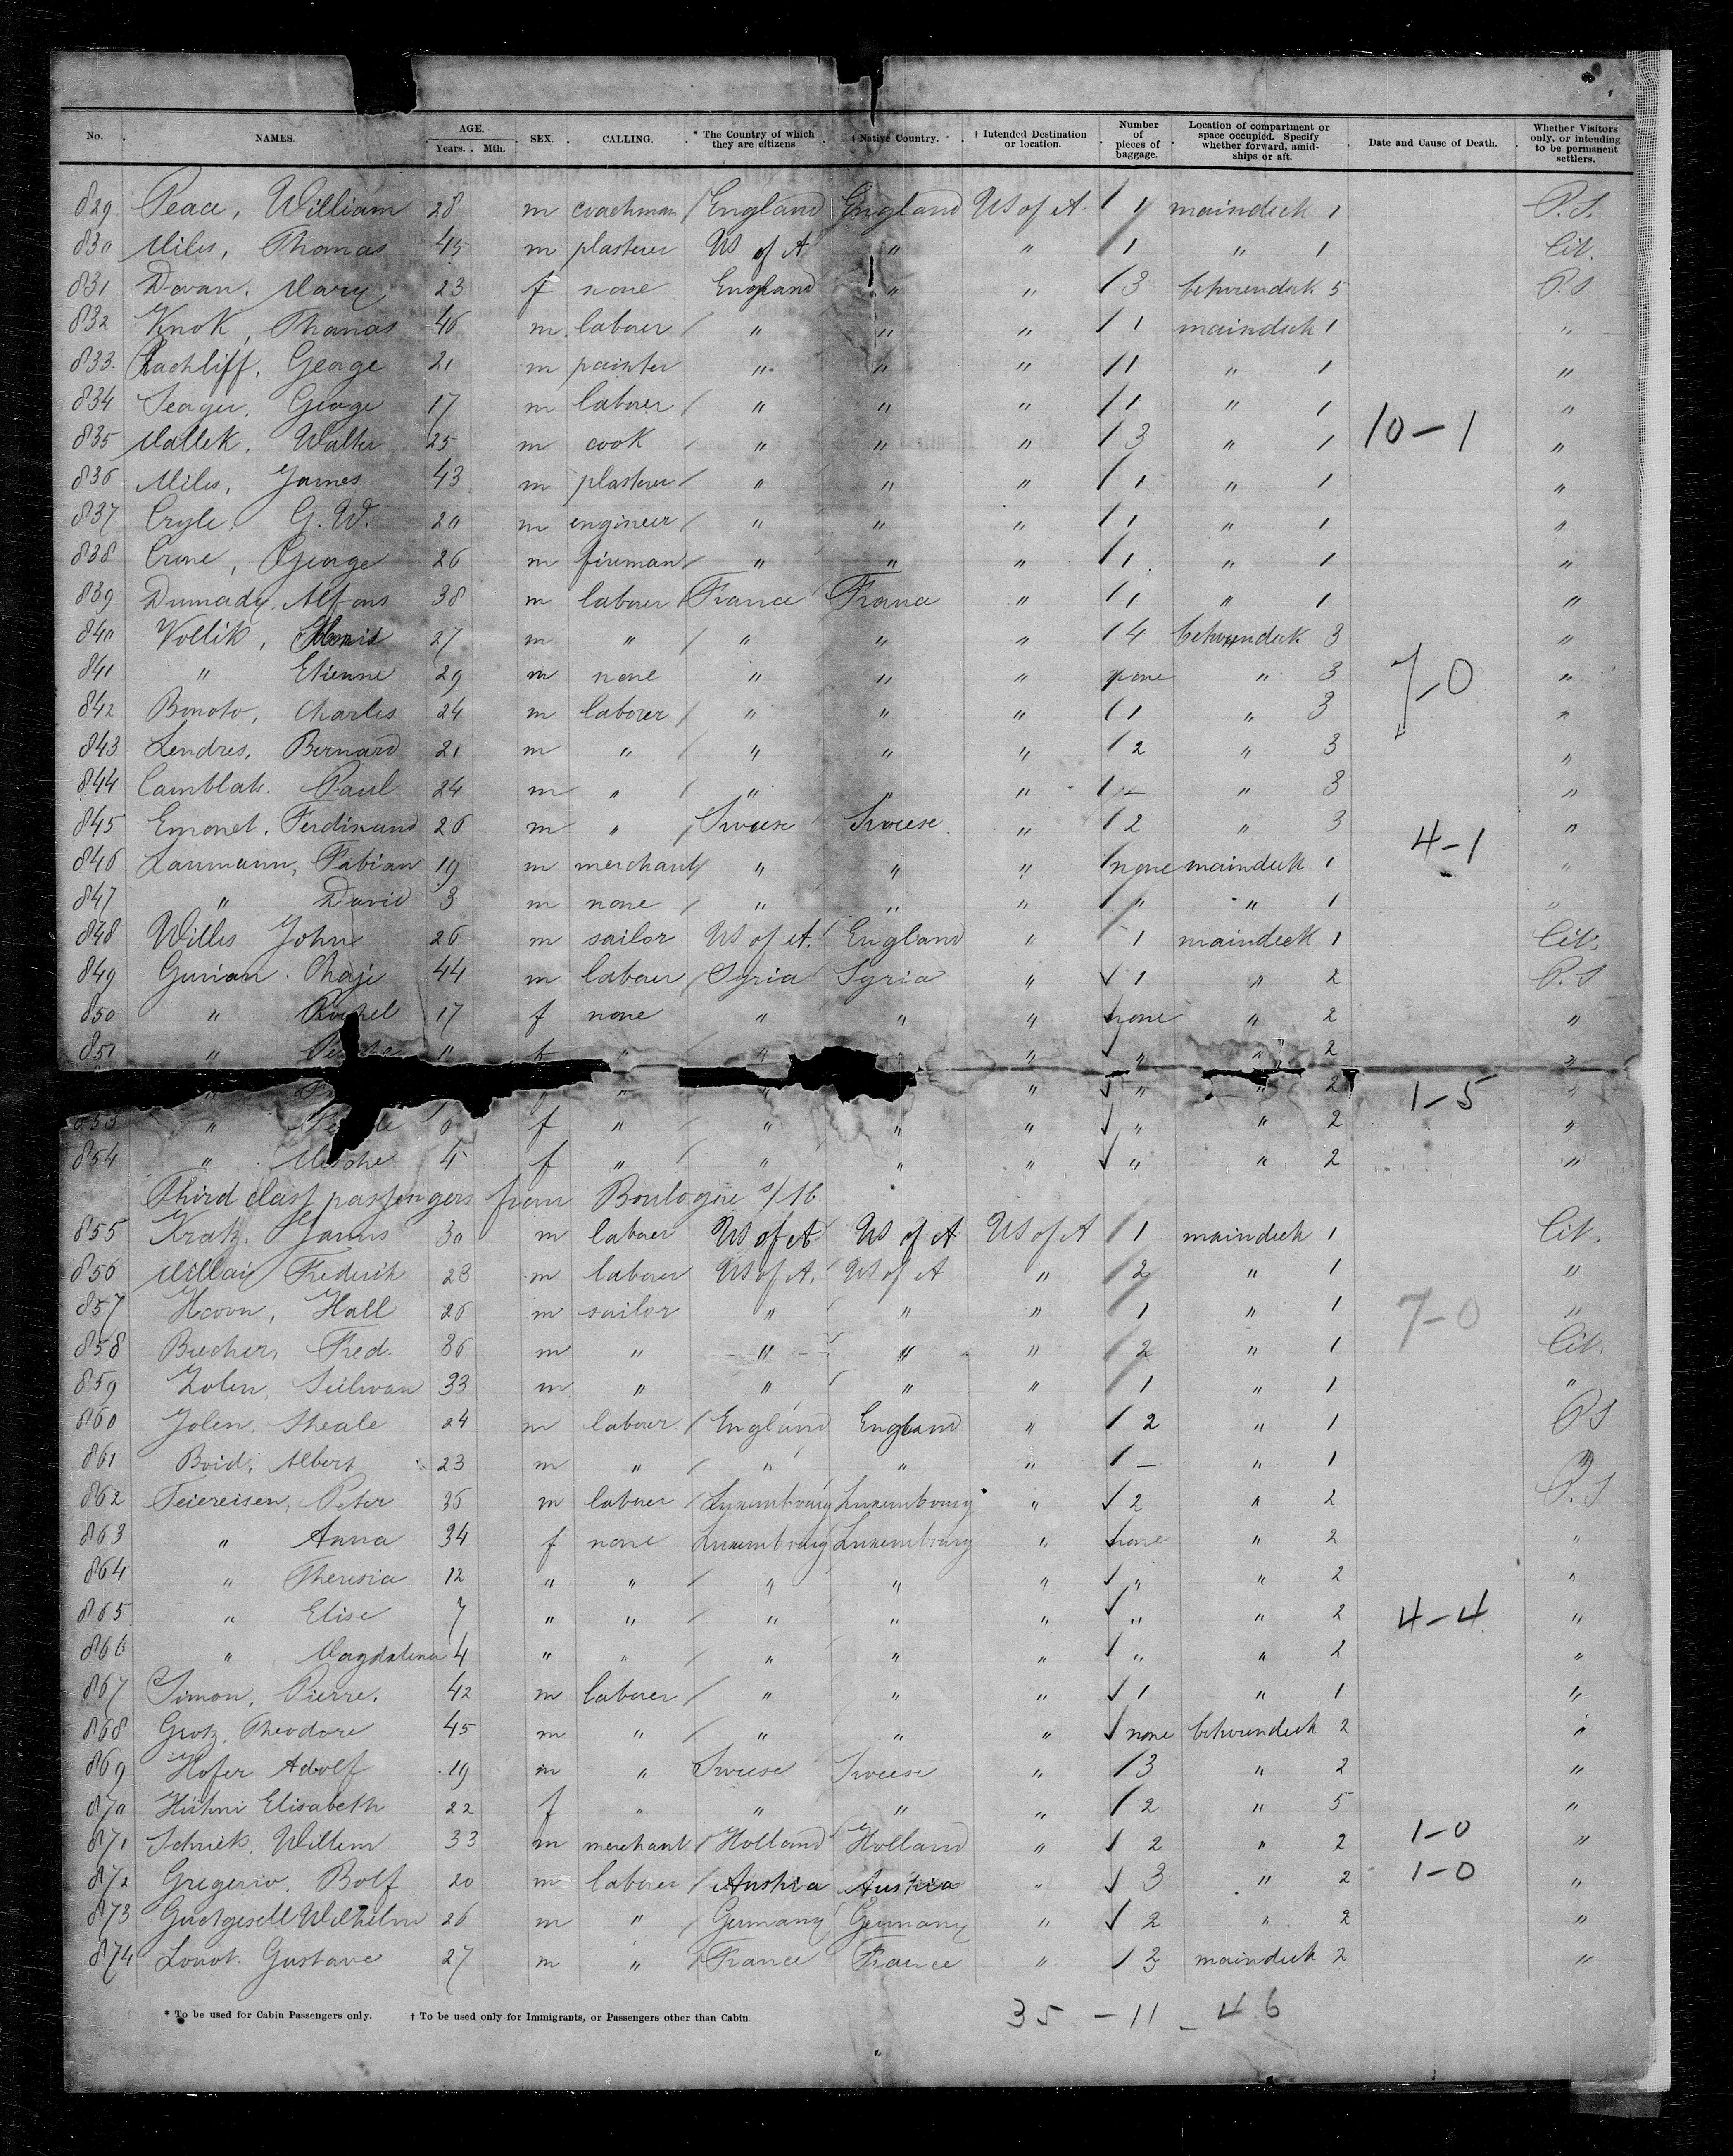 No. NAMES. AGE. Years. Mth. SEX. CALLING. * The Country of which they are citizens † Native Country. † Intended Destination or location. Number of pieces of baggage. Location of compartment or space occupied. Specify whether forward, amidships or aft. Date and Cause of Death. Whether Visitors only, or intending to be permanent settlers.
829 Peace, William 28 m coachman England England US of A 1 maindeck 1 P.S.
830 Miles, Thomas 45 m plasterer US of A " " 1 " 1 Cit.
831 Dovan, Mary 23 f none England " " 3 betweendeck 5 P.S
832 Knok, Thomas 46 m laborer " " " 1 maindeck 1 "
833 Rachliff, George 21 m painter " " " 1 " 1 "
834 Seager, George 17 m laborer " " " 1 " 1 "
835 Mallek, Walter 25 m cook " " " 3 " 1 10-1 "
836 Miles, James 43 m plasterer " " " 1 " 1 "
837 Cryle, G. W. 20 m engineer " " " 1 " 1 "
838 Crone, George 26 m fireman " " " 1 " 1 "
839 Dumady, Alfons 38 m laborer France France " 1 " 1 "
840 Vollik, 27 m " " " " 4 betweendeck 3 "
841 " Etienne 29 m none " " " none " 3 7-0 "
842 Bonoto, Charles 24 m laborer " " " 1 " 3 "
843 Lendres, Bernard 21 m " " " " 2 " 3 "
844 Camblah, Paul 24 m " " " " - " 3 "
845 Emonet, Ferdinand 26 m " Swiese Swiese " 2 " 3 4-1 "
846 Laumann, Fabian 19 m merchant " " " none maindeck 1 "
847 " David 3 m none " " " " " 1 "
848 Willis John 26 m sailor US of A. England " 1 maindeck 1 Cit.
849 Gurian Chaje 44 m laborer Syria Syria " 1 " 2 P.S
850 " Rachel 17 f none " " " none " 2 "
851 " 11 f " " " " " " 2 "
" " " " " 2 1-5 "
" f " " " " " " 2 "
854 " Mesche 4 f " " " " " " 2 "
Third class passengers from Boulogne s/M.
855 Kratz, James 30 m laborer US of A US of A US of A 1 maindeck 1 Cit.
856 Millay Frederik 23 m laborer US of A. US of A " 2 " 1 "
857 Hoovn, Hall 26 m sailor " " " 1 " 1 7-0 "
858 Buecher, Fred. 36 m " " " " 2 " 1 Cit.
859 Zolen, Sullivan 33 m " " " " 1 " 1 "
860 Jolen, Sheale 24 m laborer England England " 2 " 1 PS
861 Boid, Albert 23 m " " " " - " 1 "
862 Feiereisen, Peter 36 m laborer Luxembourg Luxembourg " 2 " 2 P.S
863 " Anna 34 f none Luxembourg Luxembourg " none " 2 "
864 " Theresia 12 " " " " " " " 2 "
865 " Elise 7 " " " " " " " 2 4-4 "
866 " Magdalena 4 " " " " " " " 2 "
867 Simon, Pierre. 42 m laborer " " " 1 " 1 "
868 Grotz, Theodore 45 m " " " " none betweendeck 2 "
869 Hofer Adolf 19 m " Swiese Swiese " 3 " 2 "
870 Hühni Elisabeth 22 f " " " " 2 " 5 "
871 Schriek, Willem 33 m merchant Holland Holland " 2 " 2 1-0 "
872 Gregerio, Bolf 20 m laborer Austria Austria " 3 " 2 1-0 "
873 Gudgesell Wilhelm 26 m " Germany Germany " 2 " 2 "
874 Lonot. Gustave 27 m " France France " 3 maindeck 2 "
* To be used for Cabin Passengers only. † To be used only for Immigrants, or Passengers other than Cabin.
35 - 11 - 46